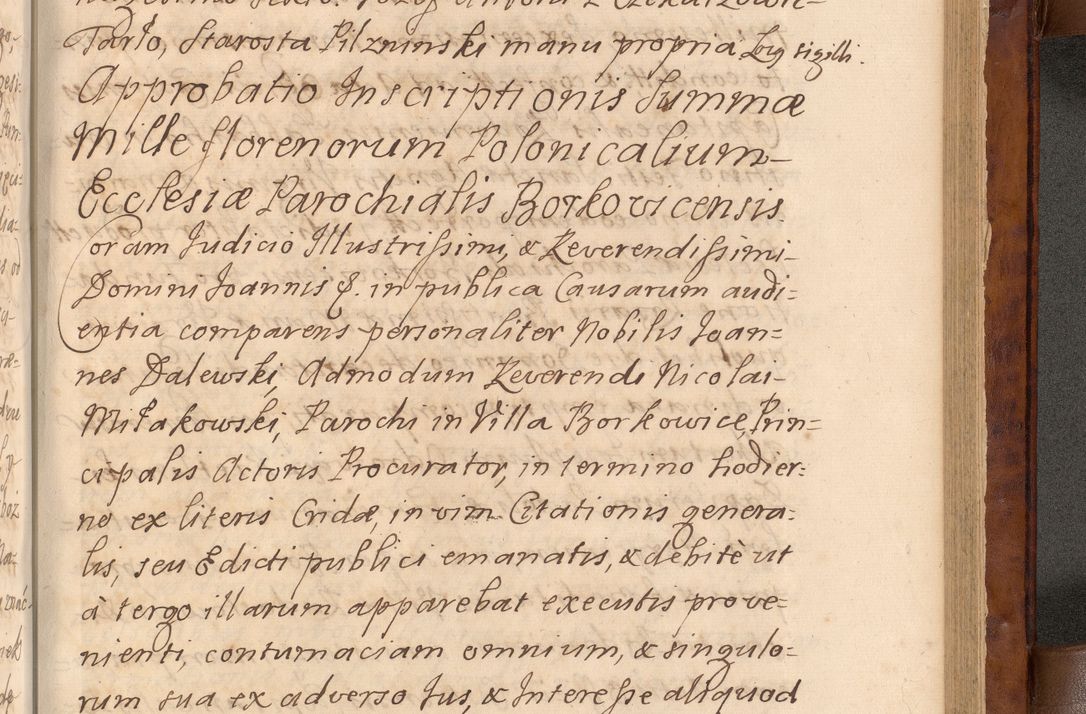 Tarło, Starosta Pilzninski manu propria Loco sigilli.
Approbatio Inscriptionis Summæ
Mille florenorum Polonicalium
Ecclesiæ Parochialis Borkovicensis
Coram Judicio Illustrissimi, & Reverendissimi
Domini Joannis &. in publica Causarum audi=
entia comparens personaliter Nobilis Joan=
nes Dalewski, Admodum Reverendi Nicolai
Miłakowski, Parochi in Villa Borkowice, Prin=
cipalis Actoris Procurator, in termino hodier=
no ex literis Cridæ, in vim Citationis genera=
lis, seu Edicti publici emanatis, & debitè ut
à tergo illarum apparebat executis prove=
nienti, contumaciam omnium, & singulo=
rum sua ex adverso Jus, & Interesse aliquod